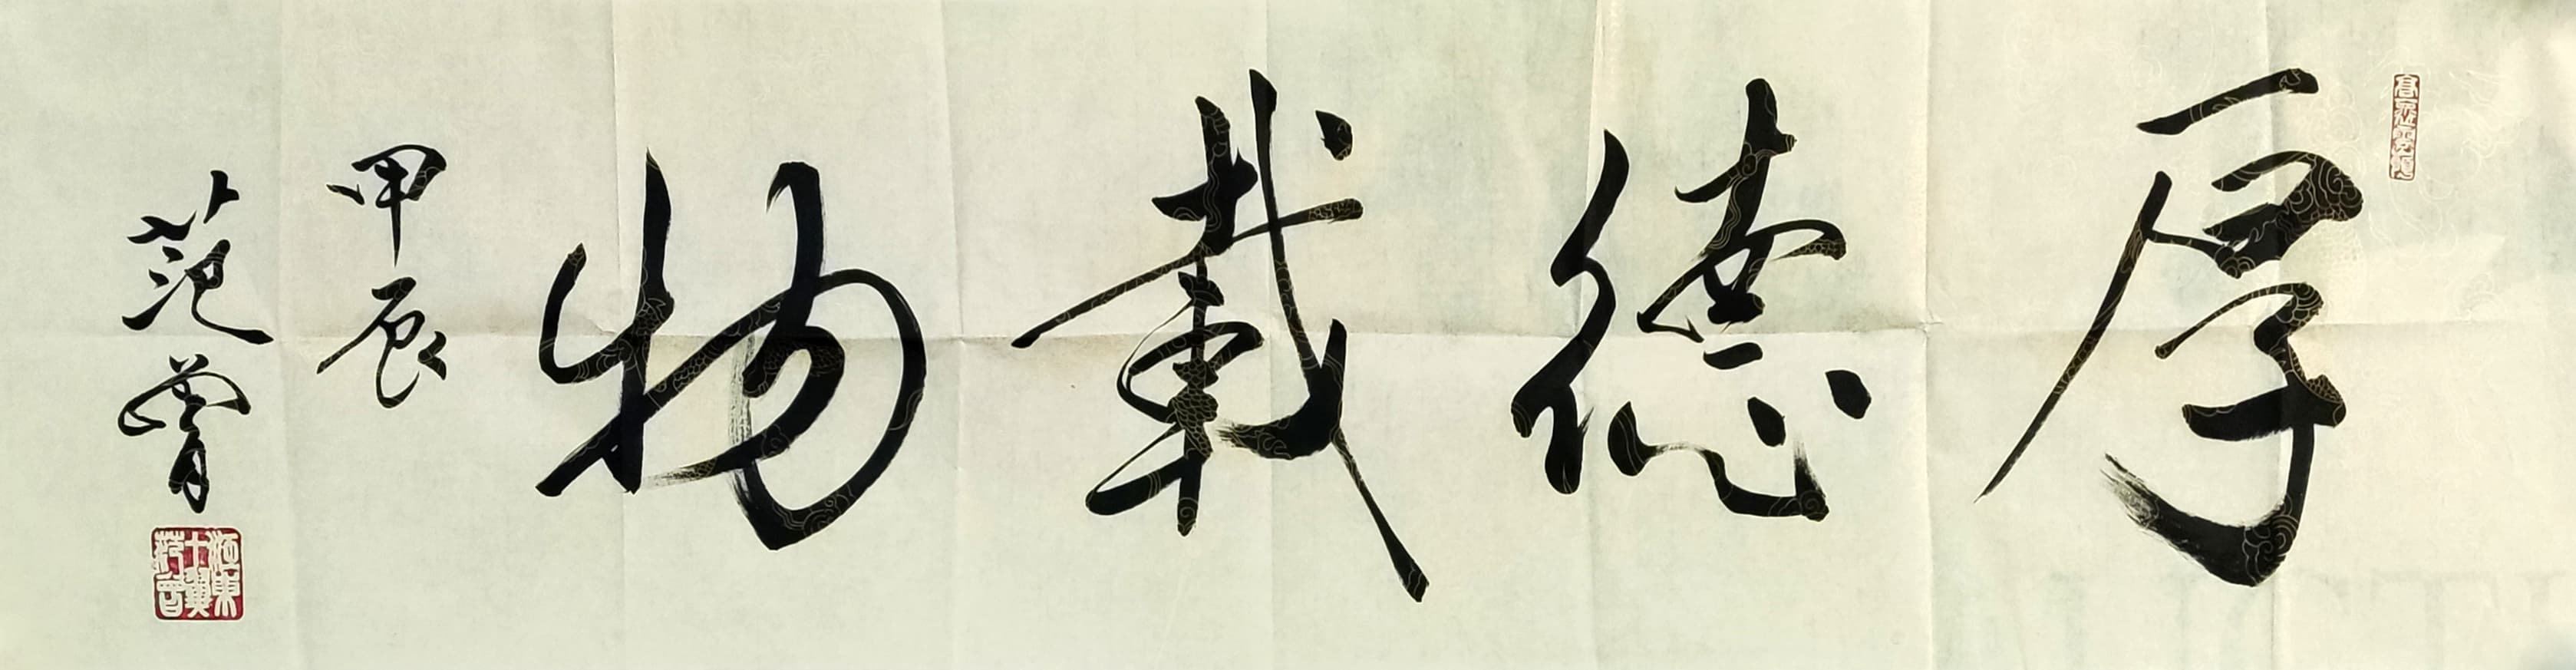 厚德載物
甲辰
范曾